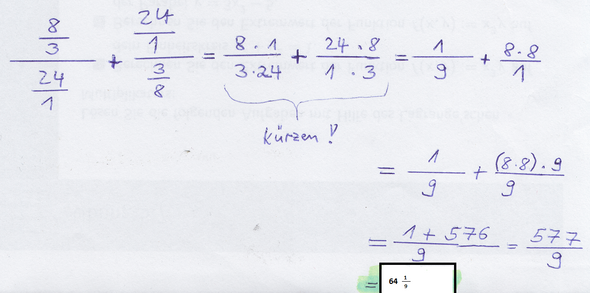 (8/3)/(24/1) + (24/1)/(3/8) = (8 · 1)/(3 · 24) + (24 · 8)/(1 · 3) = 1/9 + (8 · 8)/1
Kürzen!
= 1/9 + ((8·8) · 9)/9
= (1 + 576)/9 = 577/9
= 64 1/9